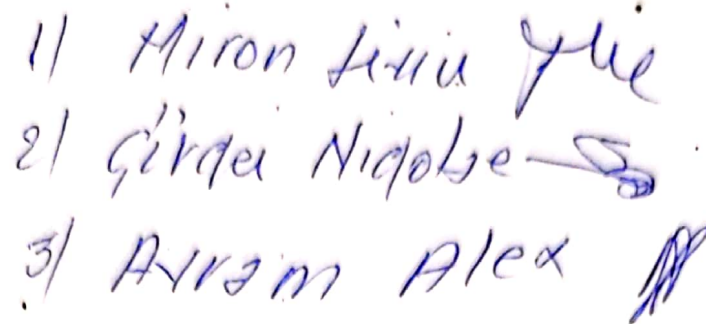 1) Miron Liviu
2) Nicolae
3) Avram Alex